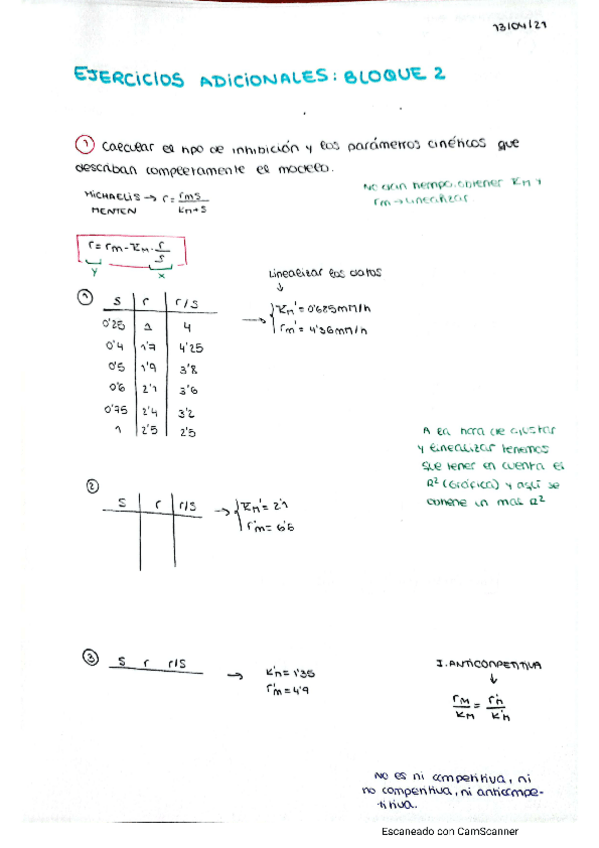 13/04/21
EJERCICIOS ADICIONALES: BLOQUE 2
① Calcular el tipo de inhibición y los parámetros cinéticos que
describan completamente el modelo.
MICHAELIS → r = rmS
MENTEN Km+S
No dan tiempo, obtener Km y
rm → Linealizar
r = rm - Km · r/S
y x
Linealizar los datos
↓
① S r r/S
0'25 1 4
0'4 1'7 4'25
0'5 1'9 3'8
0'6 2'1 3'6
0'75 2'4 3'2
1 2'5 2'5
→ { Km' = 0'625mM/h
rm' = 4'36mM/h
A la hora de ajustar
y linealizar tenemos
que tener en cuenta el
R² (Gráfica) y aquí se
obtiene un mal R²
② S r r/S → { Km' = 2'1
r'm = 6'6
③ S r r/S → K'm = 1'35
r'm = 4'9
I. ANTICOMPETITIVA
↓
rm/Km = r'm/K'm
No es ni competitiva, ni
no competitiva, ni anticompe-
titiva.
Escaneado con CamScanner